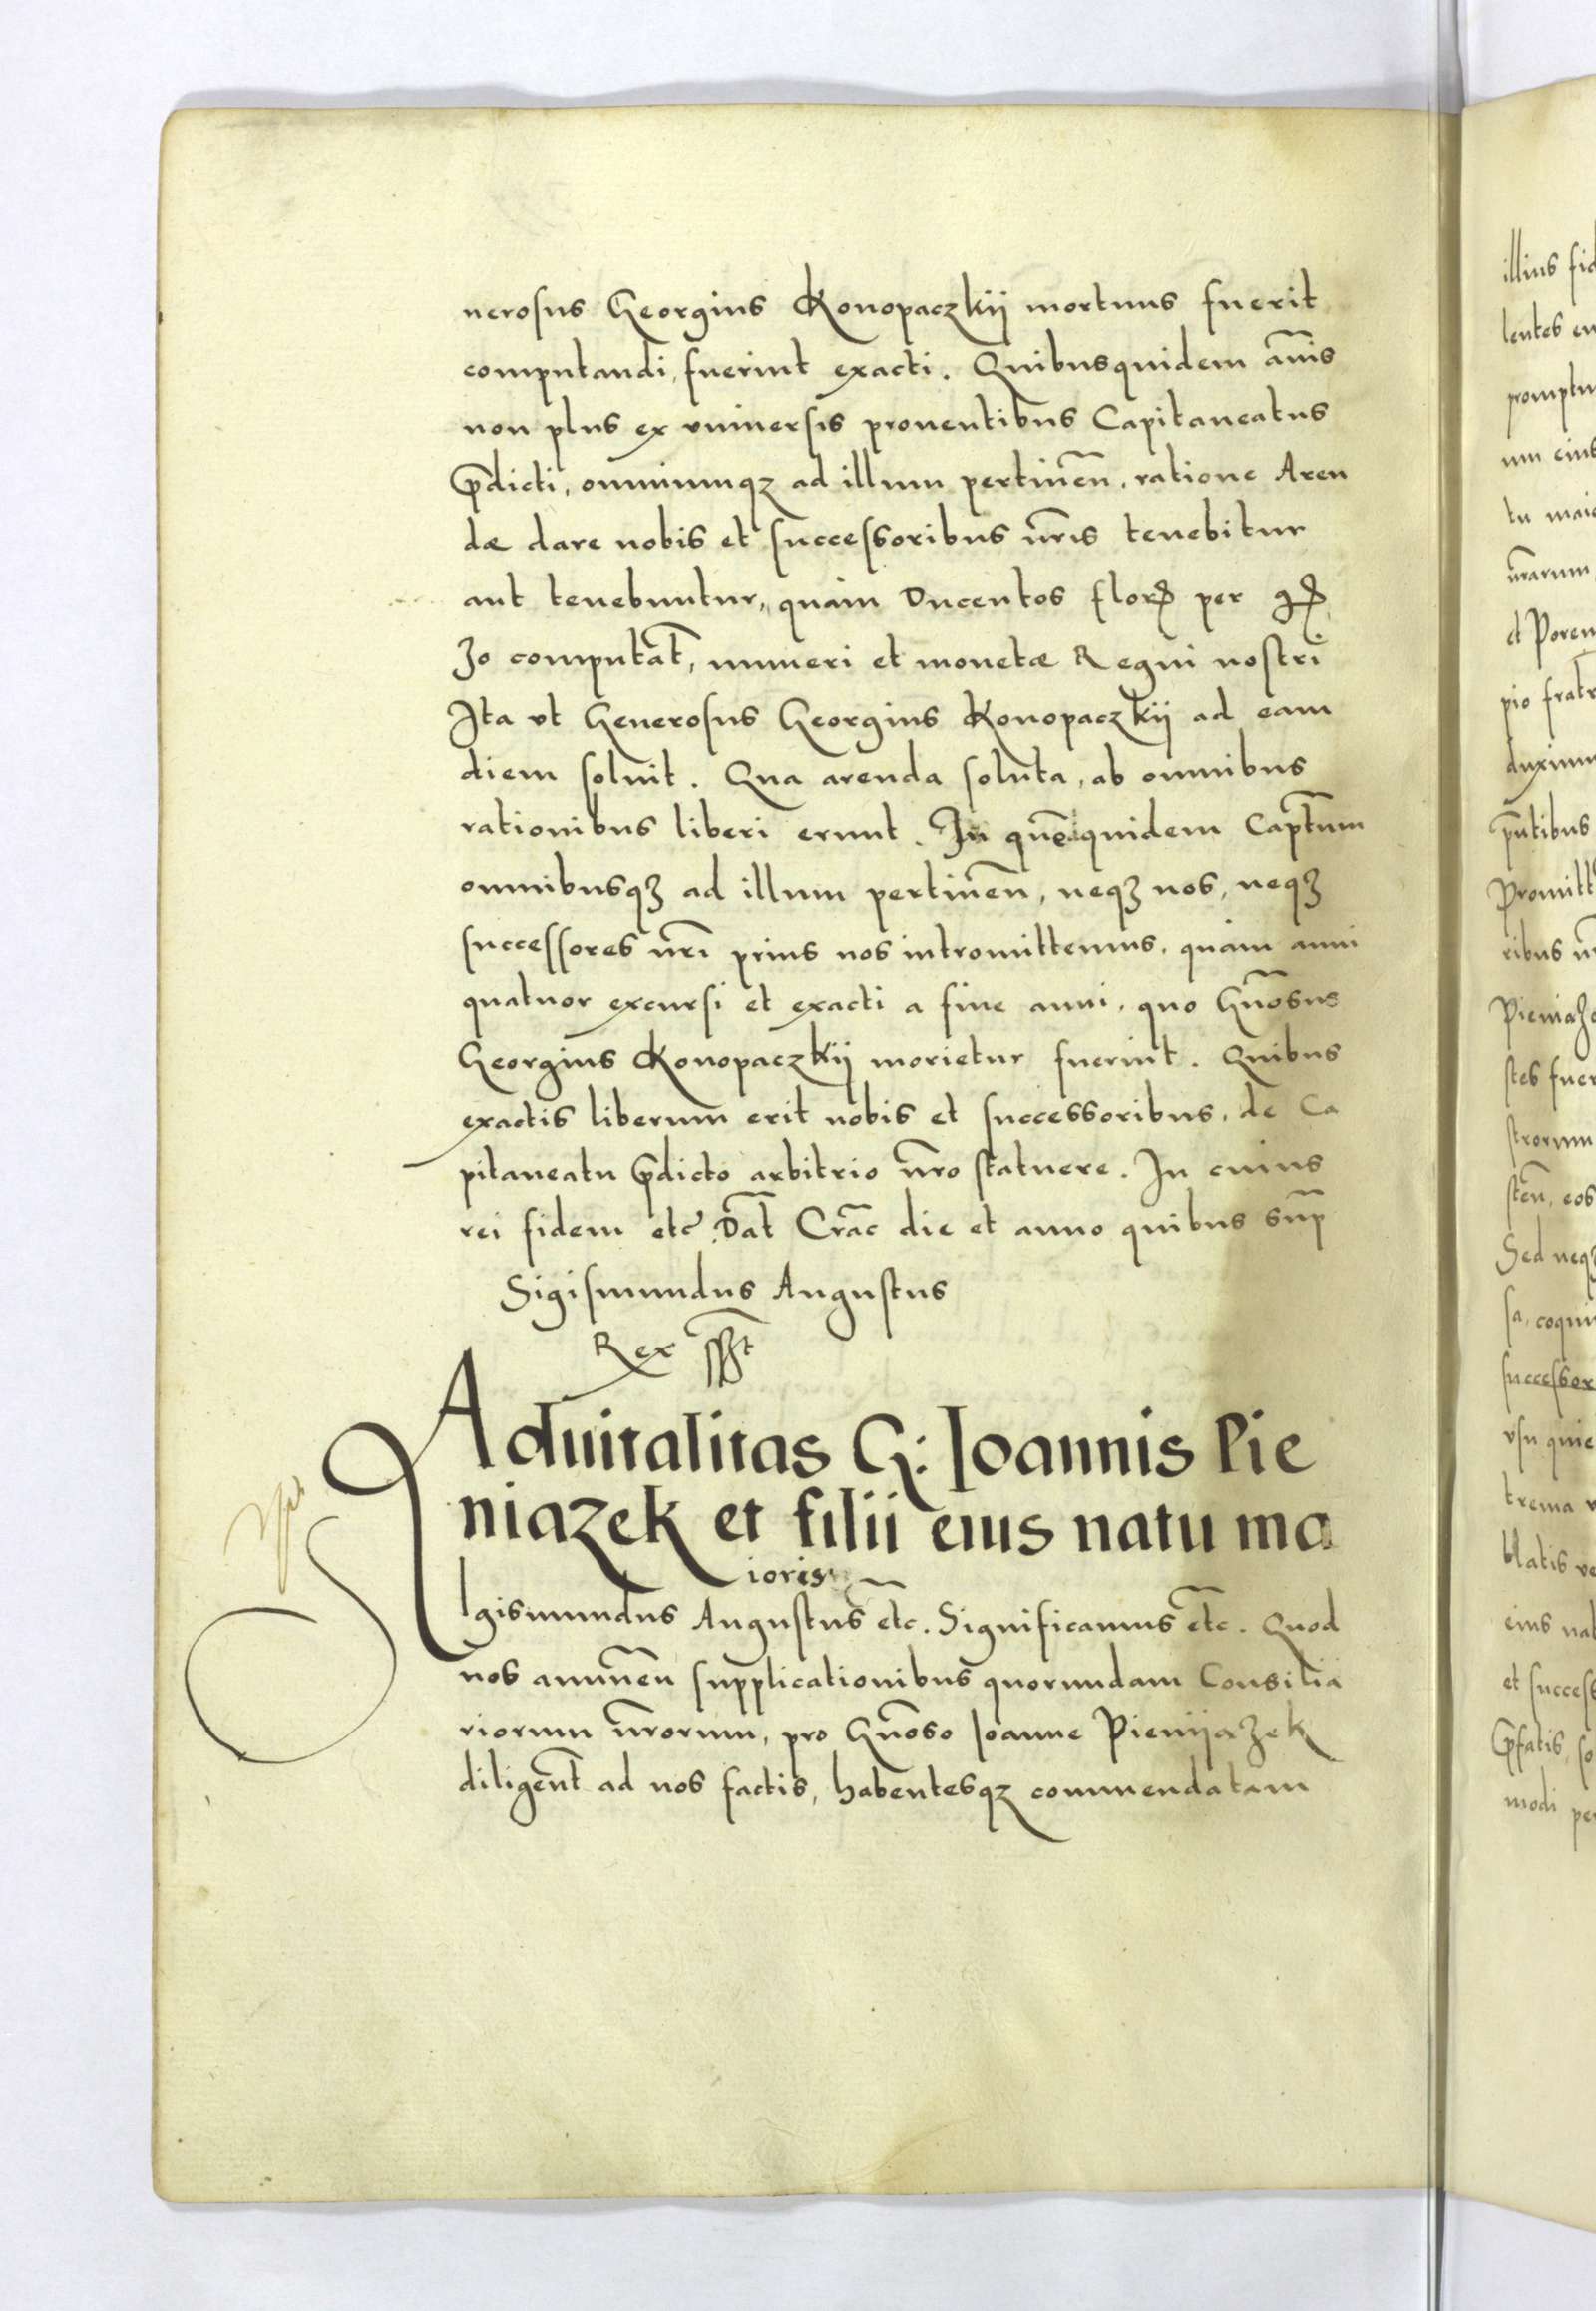 nerosus Georgius Konopaczkij mortuus fuerit
computandi, fuerint exacti. Quibusquidem an̄is
non plus ex vniuersis prouentibus Capitaneatus
p̄dicti, omniumqꝫ ad illum pertineñ, ratione Aren
dæ dare nobis et successoribus nr̄is tenebitur
aut tenebuntur, quam Ducentos flor per gꝝ
30 computat̄, numeri et monetæ Regni nostri
Ita vt Generosus Georgius Konopaczkij ad eam
diem soluit. Qua arenda soluta, ab omnibus
rationibus liberi erunt. In quē quidem Capt̄um
omnibusqꝫ ad illum pertineñ, neqꝫ nos, neqꝫ
successores nr̄i prius nos intromittemus, quam anni
quatuor excursi et exacti a fine anni, quo Gn̄osus
Georgius Konopaczkij morietur fuerint. Quibus
exactis liberum erit nobis et successoribus, de Ca
pitaneatu p̄dicto arbitrio nr̄o statuere. In cuius
rei fidem etc̄. Dat̄ Crac̄ die et anno quibus sup̄
Sigismundus Augustus
Rex sst
Aduitalitas G: Ioannis Pie
niazek et filii eius natu ma
ioris
Sigismundus Augustus etc̄. Significamus etc̄. Quod
nos annueñ supplicationibus quorundam Consilia
riorum nr̄orum, pro Gn̄oso Joanne Pienijazek
diligent̄ ad nos factis, habentesqꝫ commendatam
illius fid
lentes en
promptu
um eius
tu maio
nr̄arum
et Poren
pio fratr
duximu
pn̄tibus
Promitt
ribus n
Pieniaze
stes fuer
strorum
steñ, eos
Sed neqꝫ
sa, coqui
successor
vsu quie
trema v
blatis ve
eius nat
et success
p̄fatis, so
modi per